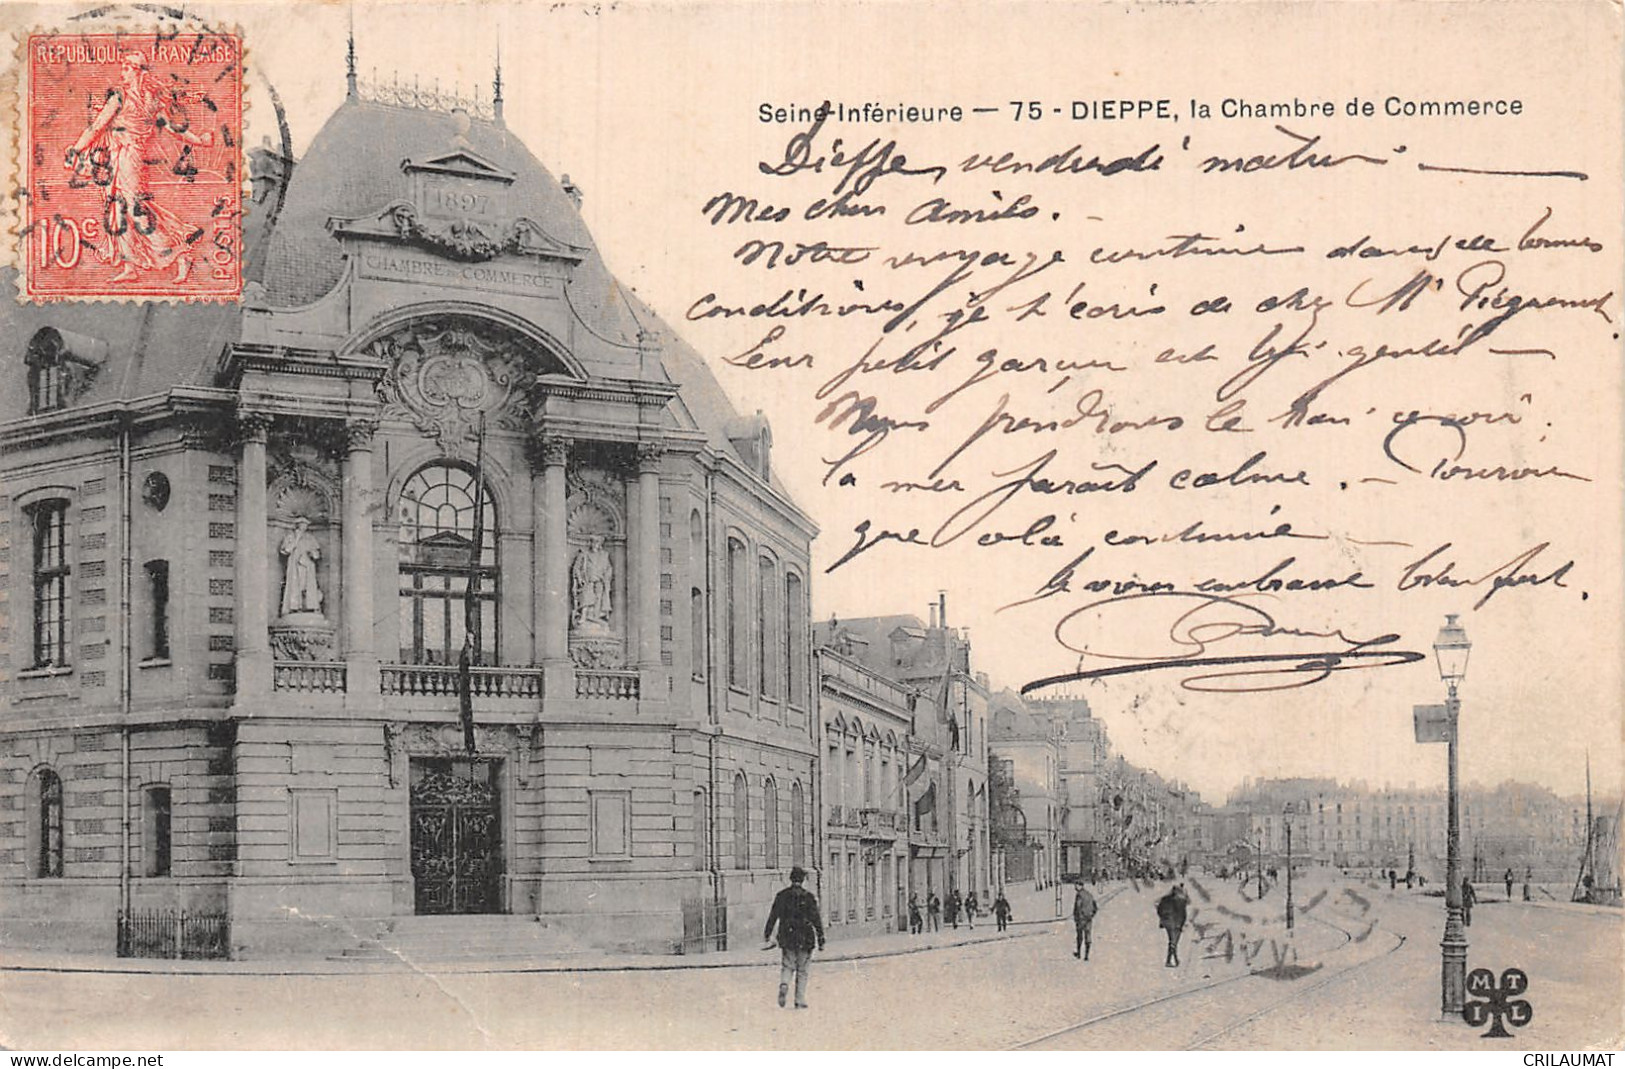 REPUBLIQUE FRANÇAISE
10c
POSTES
DIEPPE
12 15
28 -4
05
Seine-Inférieure — 75 - DIEPPE, la Chambre de Commerce
Dieppe, vendredi matin. —
Mes chers Amis. -
Notre voyage continue dans de bonnes
conditions, je t'écris de chez Mr
Leur petit garçon est gentil —
Nous prendrons le ce soir.
la mer paraît calme. — Pourvu
que cela continue —
Je vous embrasse bien fort.
1897
CHAMBRE DE COMMERCE
MTIL
www.delcampe.net
CRILAUMAT